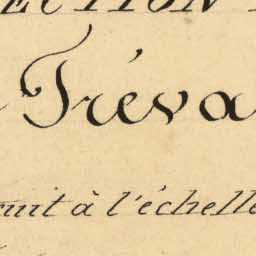 ECTION
Tréva
ruit à l'échelle